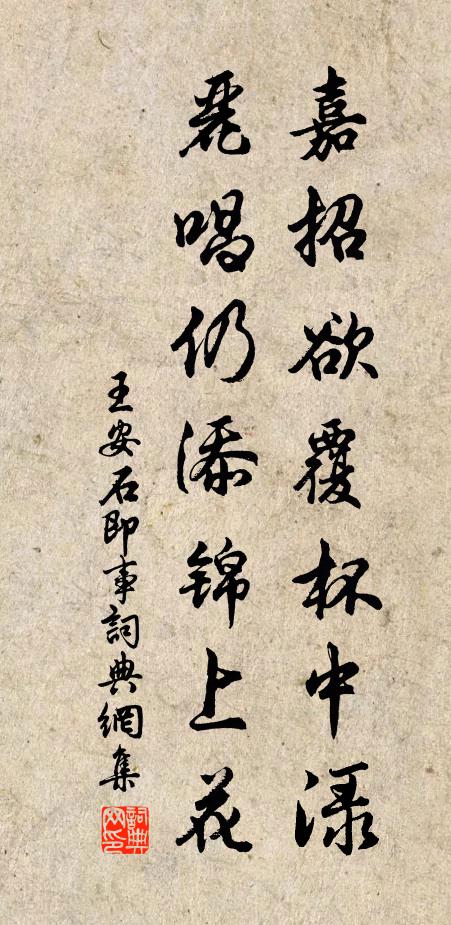 嘉招欲覆杯中渌
麗唱仍添錦上花
王安石即事詞典網集
詞典網印